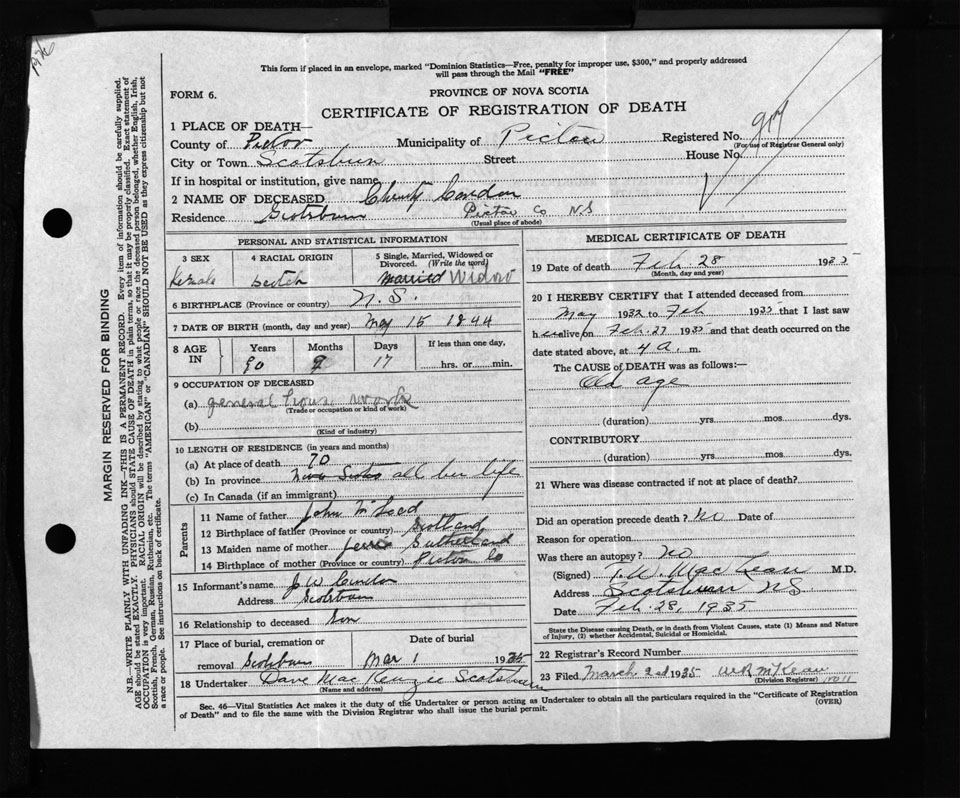 1926
This form if placed in an envelope, marked "Dominion Statistics—Free, penalty for improper use, $300," and properly addressed
will pass through the Mail "FREE"
FORM 6.
PROVINCE OF NOVA SCOTIA
CERTIFICATE OF REGISTRATION OF DEATH
1 PLACE OF DEATH—
County of Pictou Municipality of Pictou Registered No.
(For use of Registrar General only)
City or Town Scotsburn Street House No.
If in hospital or institution, give name
2 NAME OF DECEASED Christy Condon
Residence Scotsburn Pictou Co N.S
(Usual place of abode)
PERSONAL AND STATISTICAL INFORMATION
3 SEX 4 RACIAL ORIGIN 5 Single, Married, Widowed or Divorced. (Write the word)
Female Scotch Married Widow
6 BIRTHPLACE (Province or country) N.S.
7 DATE OF BIRTH (month, day and year) May 15 1844
8 AGE IN Years Months Days If less than one day,
90 9 17 hrs. or min.
9 OCCUPATION OF DECEASED
(a) general house work
(Trade or occupation or kind of work)
(b)
(Kind of industry)
10 LENGTH OF RESIDENCE (in years and months)
(a) At place of death 70
(b) In province Nova Scotia all her life
(c) In Canada (if an immigrant)
Parents
11 Name of father John McLeod
12 Birthplace of father (Province or country) Scotland
13 Maiden name of mother Sutherland
14 Birthplace of mother (Province or country) Pictou Co
15 Informant's name J W Condon
Address Scotsburn
16 Relationship to deceased Son
17 Place of burial, cremation or Date of burial
removal Scotsburn Mar 1 1935
18 Undertaker Dave MacKenzie Scotsburn
(Name and address)
MEDICAL CERTIFICATE OF DEATH
19 Date of death Feb. 28 1935
(Month, day and year)
20 I HEREBY CERTIFY that I attended deceased from
May 1932 to Feb 1935 that I last saw
her alive on Feb. 27 1935 and that death occurred on the
date stated above, at 4 a. m.
The CAUSE OF DEATH was as follows:
Old age
(duration) yrs. mos. dys.
CONTRIBUTORY
(duration) yrs. mos. dys.
21 Where was disease contracted if not at place of death?
Did an operation precede death? No Date of
Reason for operation
Was there an autopsy? No
(Signed) T.W. MacLean M.D.
Address Scotsburn N S
Date Feb. 28, 1935
State the Disease causing Death, or in death from Violent Causes, state (1) Means and Nature
of Injury, (2) whether Accidental, Suicidal or Homicidal.
22 Registrar's Record Number
23 Filed March 2nd 1935 McKean
(Division Registrar)
Sec. 46—Vital Statistics Act makes it the duty of the Undertaker or person acting as Undertaker to obtain all the particulars required in the "Certificate of Registration
of Death" and to file the same with the Division Registrar who shall issue the burial permit.
(OVER)
MARGIN RESERVED FOR BINDING
N.B.—WRITE PLAINLY WITH UNFADING INK—THIS IS A PERMANENT RECORD. Every item of information should be carefully supplied.
AGE should be stated EXACTLY. PHYSICIANS should STATE CAUSE OF DEATH in plain terms, so that it may be properly classified. Exact statement of
OCCUPATION is very important. RACIAL ORIGIN will be described by stating to what people or race the deceased person belonged, whether English, Irish,
Scottish, French, German, Russian, Ruthenian, etc. The terms "AMERICAN" or "CANADIAN" SHOULD NOT BE USED as they express citizenship but not
a race or people. See instructions on back of certificate.